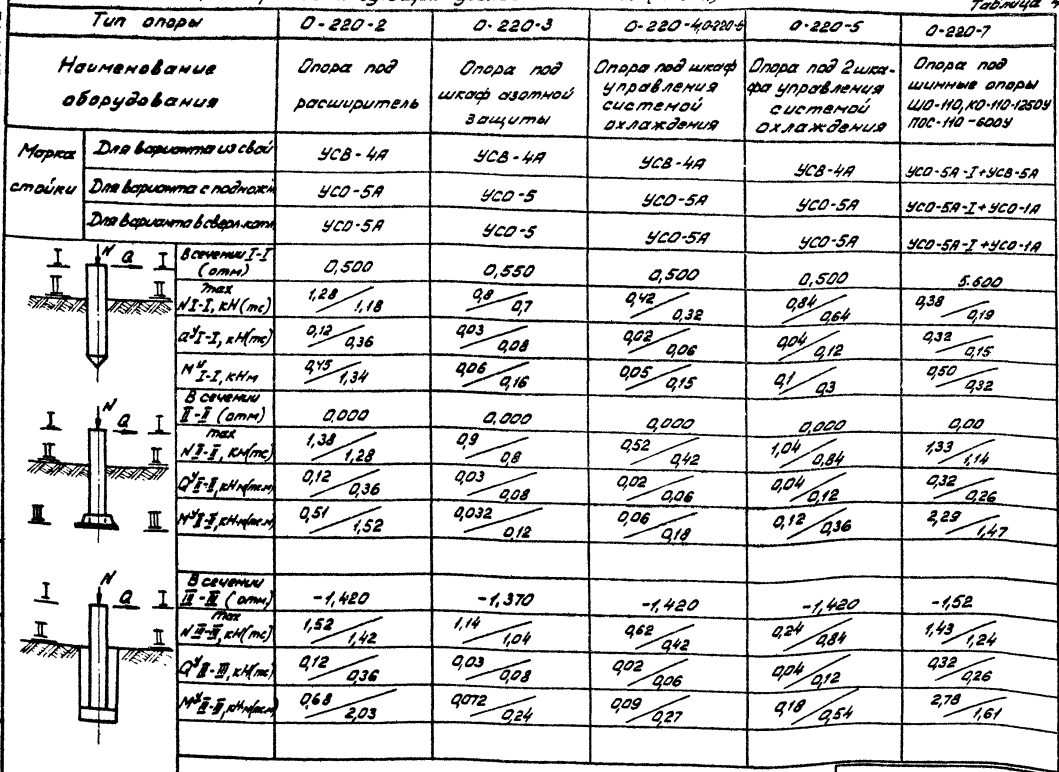 Таблица
Тип опоры О-220-2 О-220-3 О-220-4,О-220-6 О-220-5 О-220-7
Наименование оборудования
Опора под расширитель
Опора под шкаф азотной защиты
Опора под шкаф управления системой охлаждения
Опора под 2 шка-
фа управления системой охлаждения
Опора под шинные опоры ШО-110, КО-110-1250У ПОС-110-600У
Марка стойки
Для варианта из свай УСВ-4А УСВ-4А УСВ-4А УСВ-4А УСО-5А-I+УСВ-5А
Для варианта с подножн УСО-5А УСО-5 УСО-5А УСО-5А УСО-5А-I+УСО-1А
Для варианта в сверл.котл УСО-5А УСО-5 УСО-5А УСО-5А УСО-5А-I+УСО-1А
В сечении I-I (отм) 0,500 0,550 0,500 0,500 5.600
max N I-I, кН(тс) 1,28/1,18 0,8/0,7 0,42/0,32 0,84/0,64 0,38/0,19
Qу I-I, кН(тс) 0,12/0,36 0,03/0,08 0,02/0,06 0,04/0,12 0,32/0,15
Mу I-I, кНм 0,45/1,34 0,06/0,16 0,05/0,15 0,1/0,3 0,50/0,32
В сечении II-II (отм) 0,000 0,000 0,000 0,000 0,00
max N II-II, кН(тс) 1,38/1,28 0,9/0,8 0,52/0,42 1,04/0,84 1,33/1,14
Qу II-II, кНм(тсм) 0,12/0,36 0,03/0,08 0,02/0,06 0,04/0,12 0,32/0,26
Mу II-II, кНм(тсм) 0,51/1,52 0,032/0,12 0,06/0,18 0,12/0,36 2,29/1,47
В сечении III-III (отм) -1,420 -1,370 -1,420 -1,420 -1,52
max N III-III, кН(тс) 1,52/1,42 1,14/1,04 0,62/0,42 0,24/0,84 1,43/1,24
Qу II-III, кН(тс) 0,12/0,36 0,03/0,08 0,02/0,06 0,04/0,12 0,32/0,26
Mу II-II, кНм(тсм) 0,68/2,03 0,072/0,24 0,09/0,27 0,18/0,54 2,78/1,61
N
I Q I
II II
N
I Q I
II II
III III
N
I Q I
II II